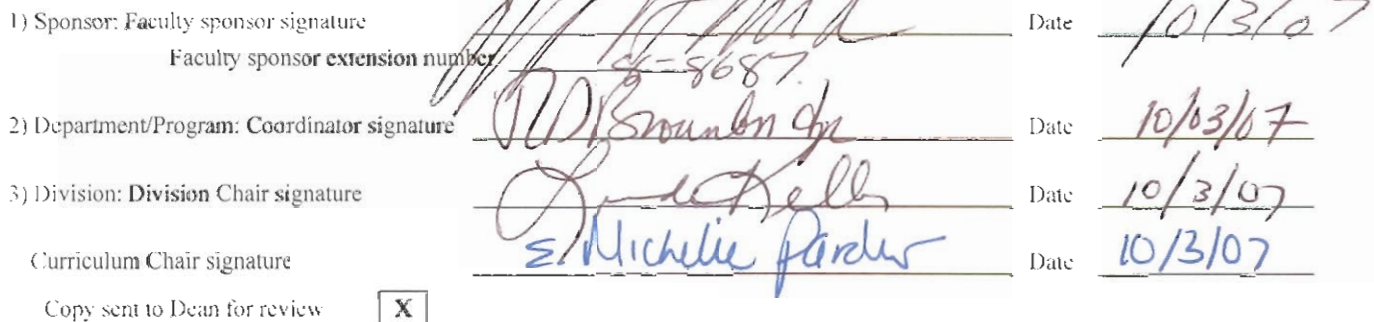 1) Sponsor: Faculty sponsor signature Date 10/3/07
Faculty sponsor extension number 8-8687
2) Department/Program: Coordinator signature Date 10/03/07
3) Division: Division Chair signature Date 10/3/07
Curriculum Chair signature E. Michelle Date 10/3/07
Copy sent to Dean for review X